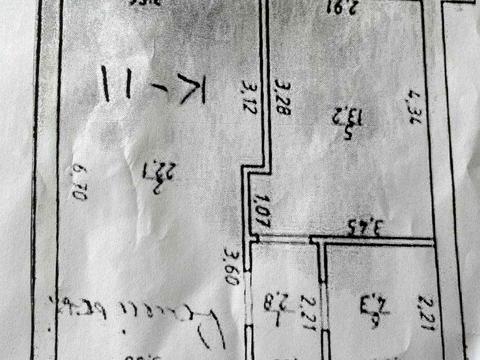 2.21
4.3
2.21
1
2.8
3.60
3.45
1.07
2
22.1
6.70
5
13.2
4.34
3.28
3.12
К-11
2.91